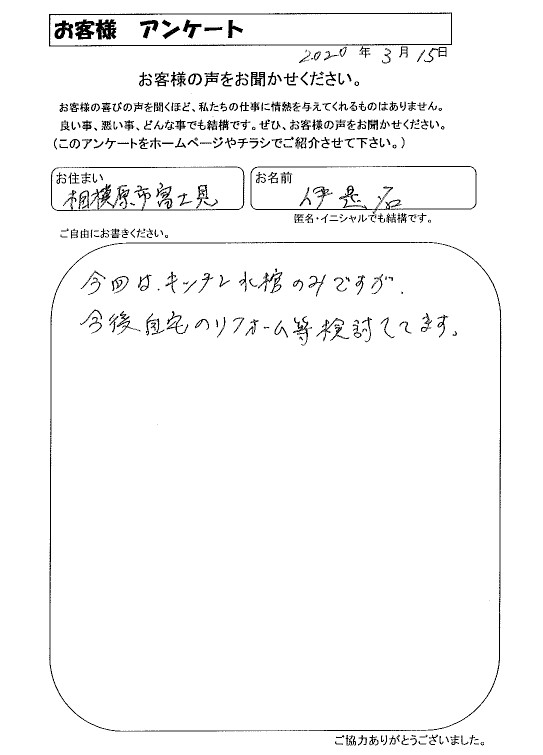 お客様 アンケート
2020 年 3 月 15日
お客様の声をお聞かせください。
お客様の喜びの声を聞くほど、私たちの仕事に情熱を与えてくれるものはありません。
良い事、悪い事、どんな事でも結構です。ぜひ、お客様の声をお聞かせください。
(このアンケートをホームページやチラシでご紹介させて下さい。)
お住まい
相模原市富士見
お名前
伊是名
匿名・イニシャルでも結構です。
ご自由にお書きください。
今回は、キッチン水栓のみですが、
今後自宅のリフォーム等検討してます。
ご協力ありがとうございました。